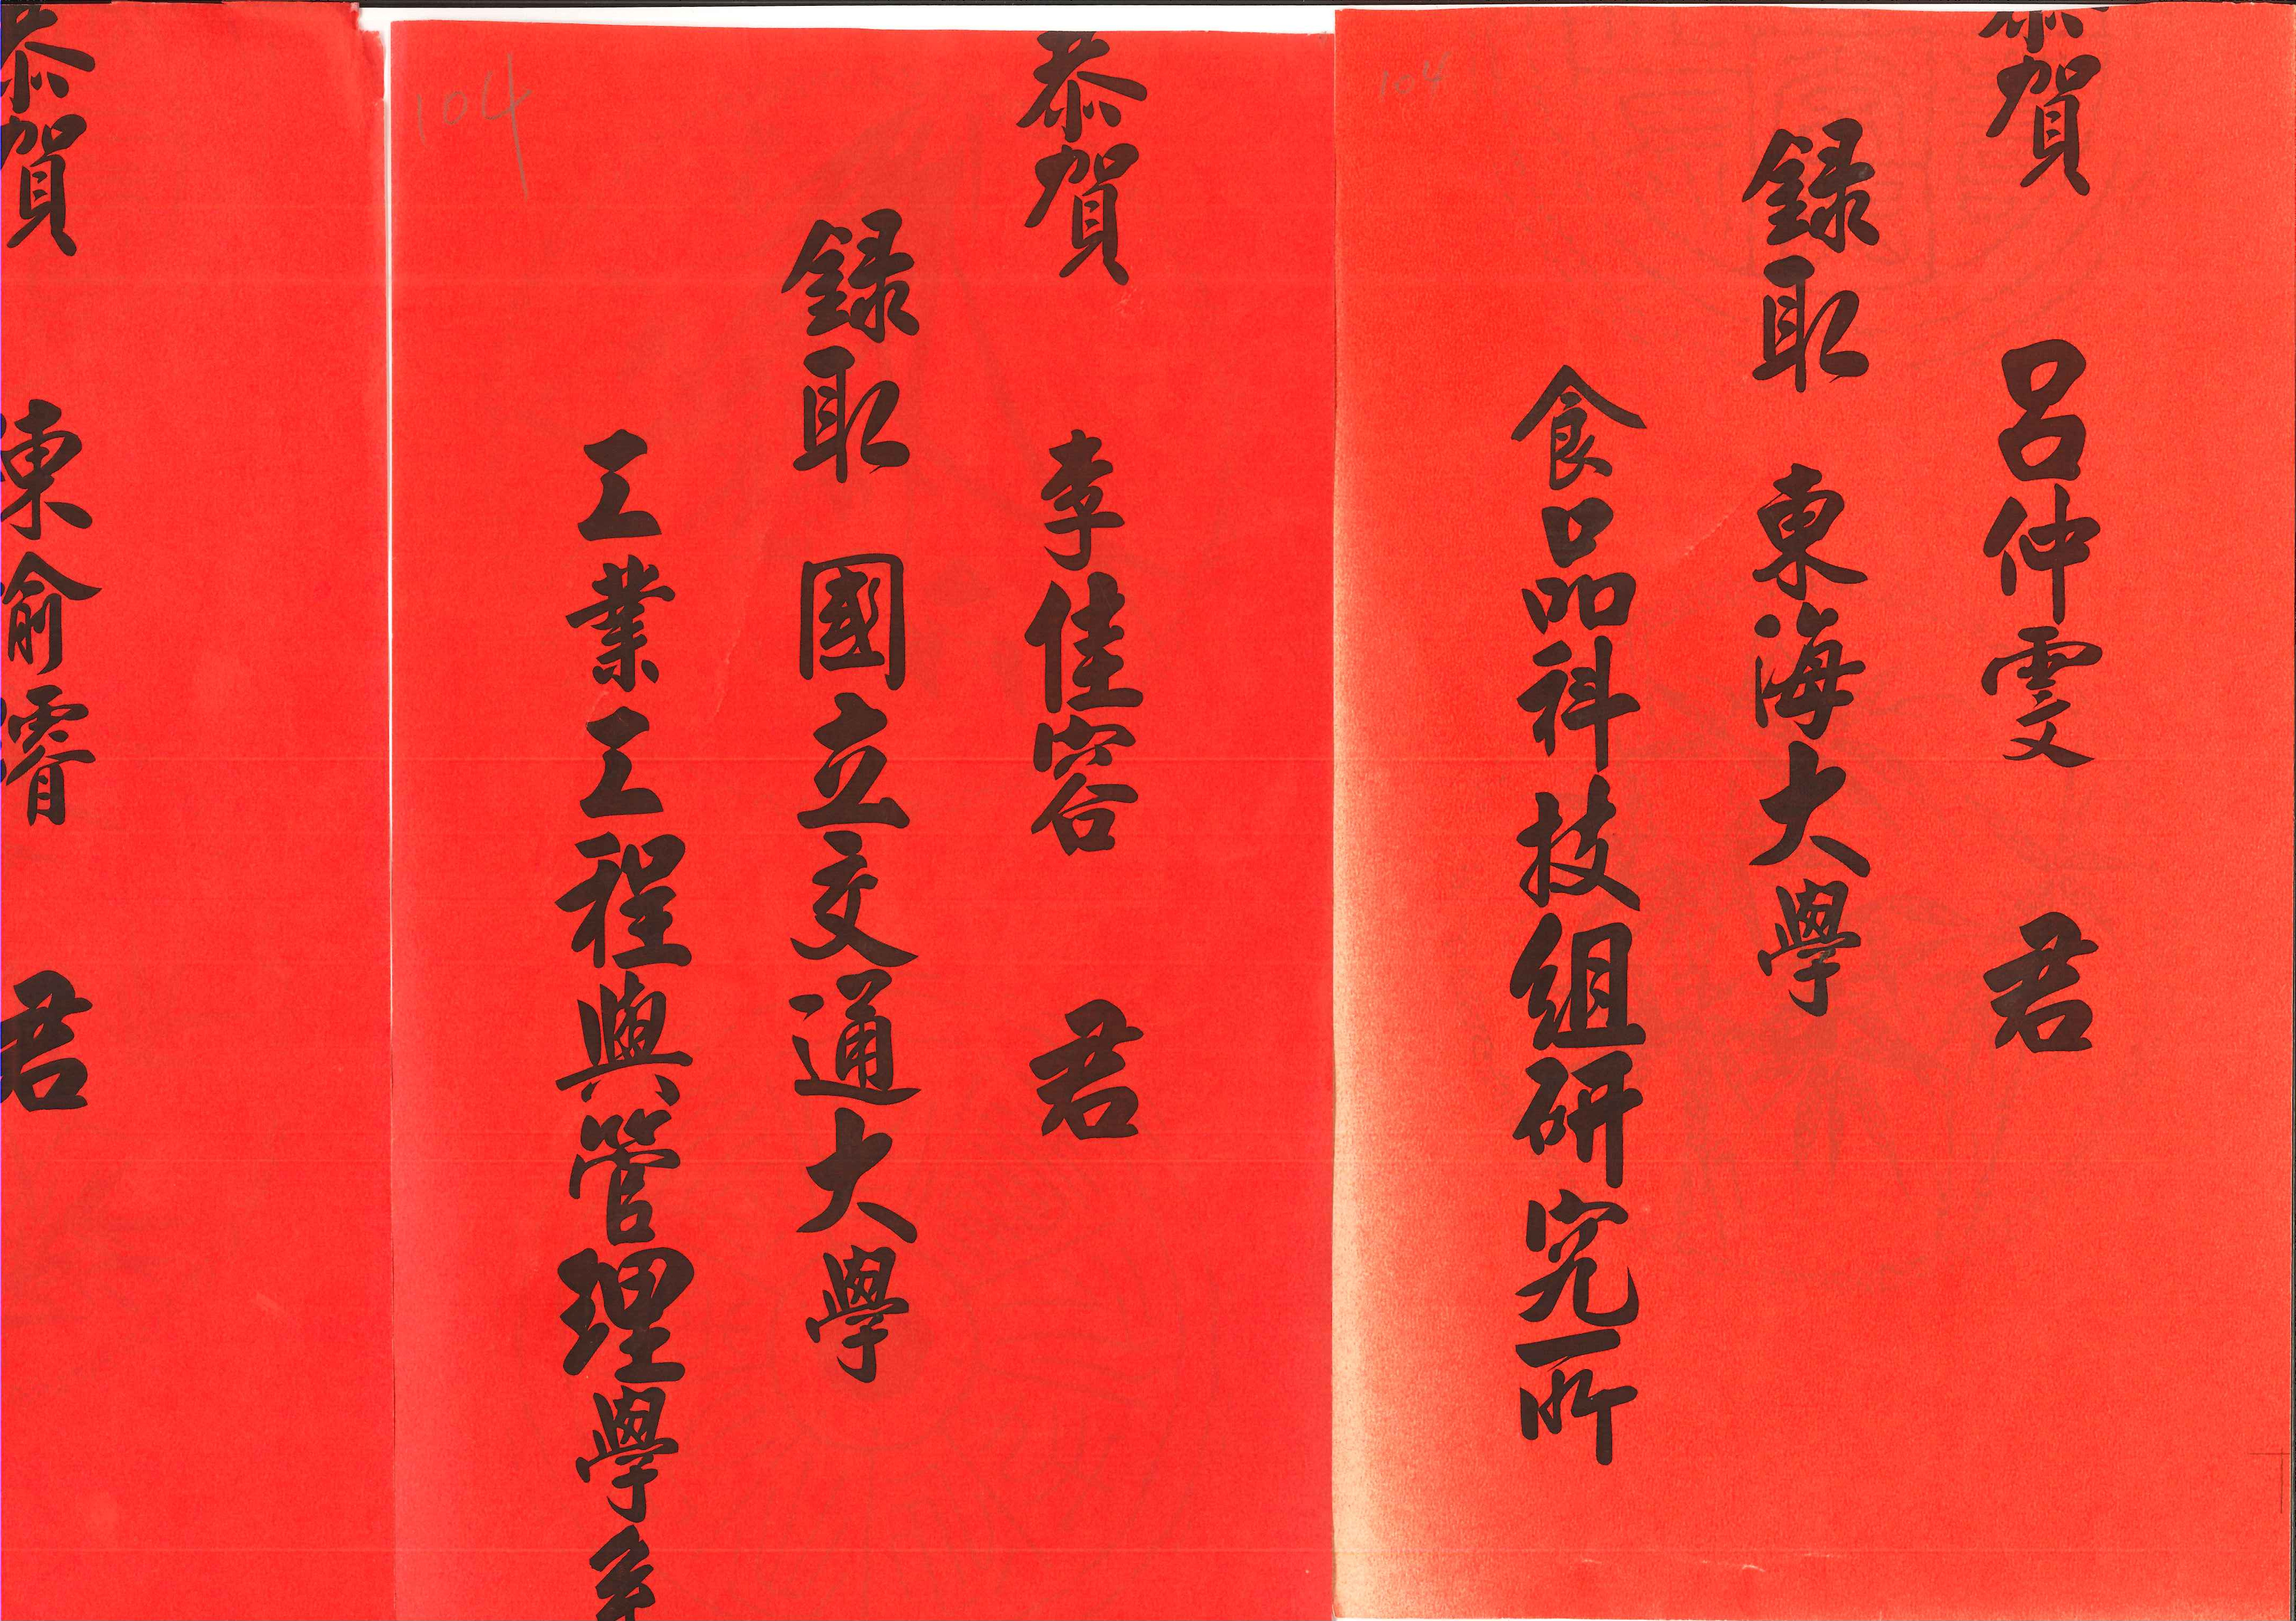 恭賀 呂仲雯 君
録取 東海大學
食品科技組研究所
104
恭賀 李佳容 君
録取 國立交通大學
工業工程與管理學系
104
恭賀 君